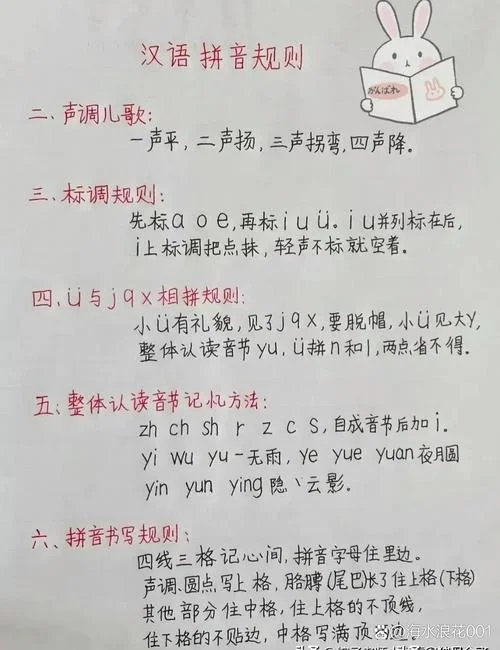 汉语拼音规则
がんばれ
二、声调儿歌:
一声平,二声扬,三声拐弯,四声降。
三、标调规则:
先标a o e,再标i u ü。i u并列标在后,
i上标调把点抹,轻声不标就空着。
四、ü与j q x相拼规则:
小ü有礼貌,见了j q x,要脱帽,小ü见大y,
整体认读音节yu,ü拼n和l,两点省不得。
五、整体认读音节记忆方法:
zh ch sh r z c s,自成音节后加i。
yi wu yu-无雨,ye yue yuan夜月圆
yin yun ying隐丶云影。
六、拼音书写规则:
四线三格记心间,拼音字母住里边。
声调、圆点写上格,胳膊(尾巴)长了住上格(下格)
其他部分住中格,住上格的不顶线,
住下格的不贴边,中格写满顶
@海水浪花001